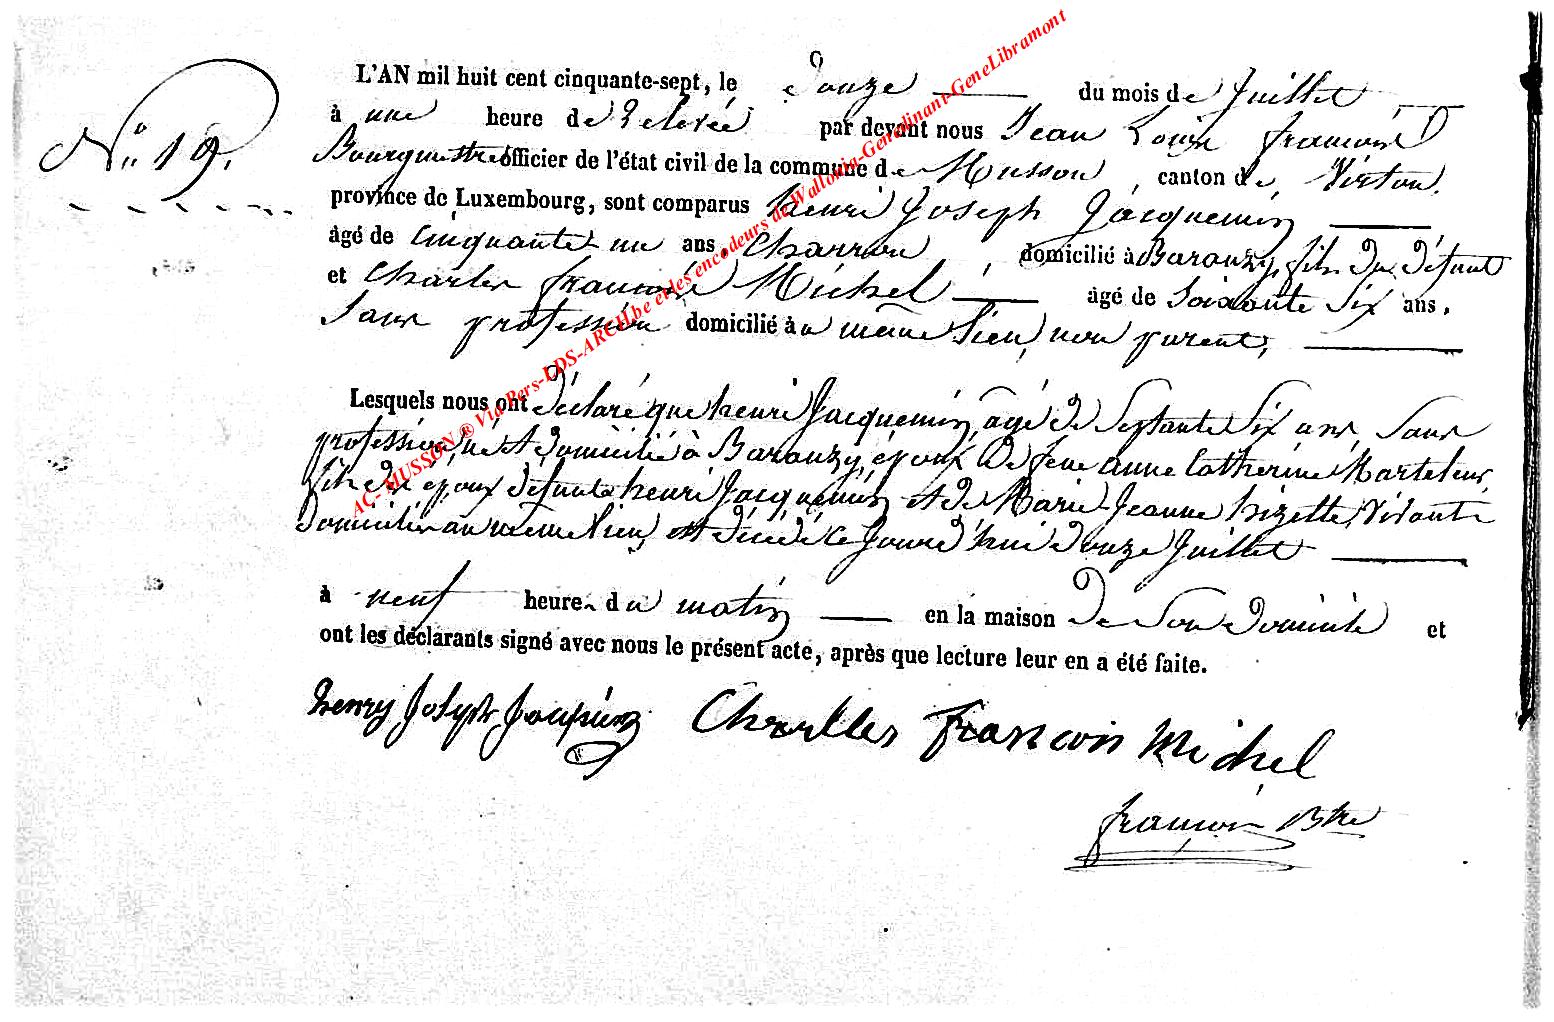 N.º 19.
L'AN mil huit cent cinquante-sept, le douze du mois de Juillet
à une heure de relevée par devant nous Jean Louis françois
Bourgmestre officier de l'état civil de la commune de Musson, canton de Virton,
province de Luxembourg, sont comparus henri Joseph Jacquemin
âgé de cinquante un ans, charron, domicilié à Baranzy, fils du défunt
et Charles françois Michel âgé de Soixante Six ans.
Sans profession domicilié au même lieu, non parent,
Lesquels nous ont déclaré que henri Jacquemin, agé de Septante Six ans, Sans
profession, né et domicilié à Baranzy, époux de feue anne Catherine Marteleur,
fils des époux défunts henri Jacquemin et de Marie Jeanne hizette, vivants
domiciliés au même lieu, est décédé ce Jourd'hui douze Juillet
à neuf heures du matin en la maison de Son domicile et
ont les déclarants signé avec nous le présent acte, après que lecture leur en a été faite.
henry Joseph Charlles francois Michel
françois Btre
AC- MUSSON ® Via Pers-LDS-ARCH.be et les encodeurs de Wallonia-Genedinant-GeneLibramont